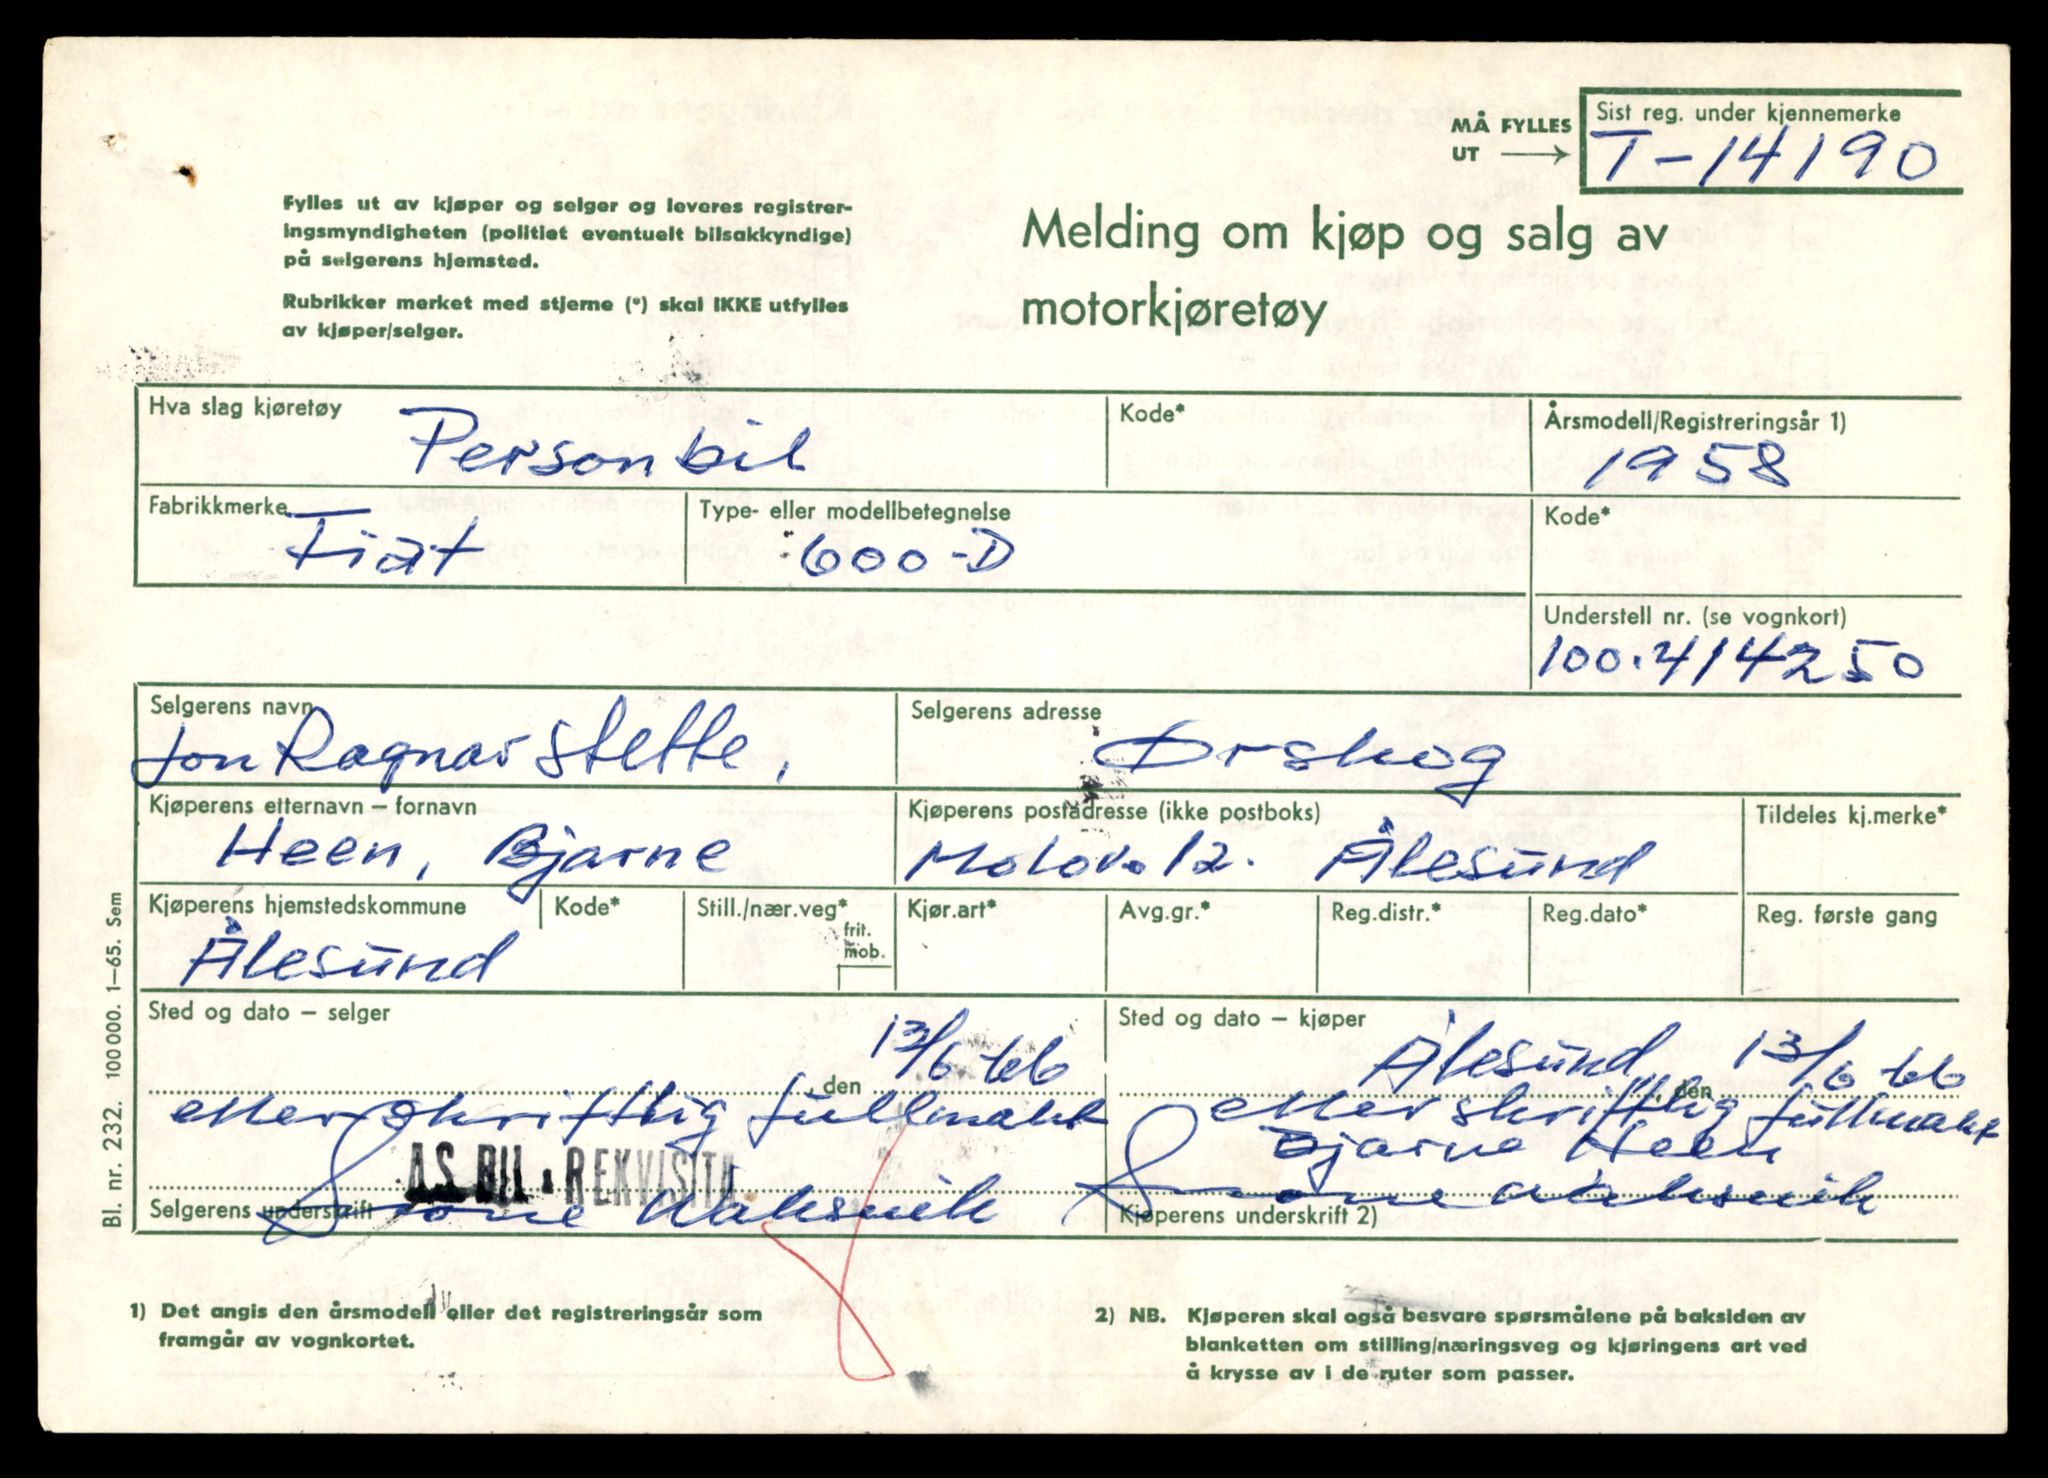 MÅ FYLLES UT
Sist reg. under kjennemerke
T-14190
Fylles ut av kjøper og selger og leveres registrer-
ingsmyndigheten (politiet eventuelt bilsakkyndige)
på selgerens hjemsted.
Rubrikker merket med stjerne (*) skal IKKE utfylles
av kjøper/selger.
Melding om kjøp og salg av
motorkjøretøy
Hva slag kjøretøy
Personbil
Kode*
Årsmodell/Registreringsår 1)
1958
Fabrikkmerke
Fiat
Type- eller modellbetegnelse
600-D
Kode*
Understell nr. (se vognkort)
100.414250
Selgerens navn
Jon Ragnar Stette,
Selgerens adresse
Ørskog
Kjøperens etternavn – fornavn
Heen, Bjarne
Kjøperens postadresse (ikke postboks)
Molov. 12. Ålesund
Tildeles kj.merke*
Kjøperens hjemstedskommune
Ålesund
Kode*
Still./nær.veg*
frit.
mob.
Kjør.art*
Avg.gr.*
Reg.distr.*
Reg.dato*
Reg. første gang
Sted og dato – selger
, den 13/6 66
etter skriftlig fullmakt
AS BIL-REKVISITA
Selgerens underskrift
Sted og dato – kjøper
Ålesund, den 13/6 66
etter skriftlig fullmakt
Bjarne Heen
Kjøperens underskrift 2)
Bl. nr. 232. 100 000. 1–65. Sem
1) Det angis den årsmodell eller det registreringsår som
framgår av vognkortet.
2) NB. Kjøperen skal også besvare spørsmålene på baksiden av
blanketten om stilling/næringsveg og kjøringens art ved
å krysse av i de ruter som passer.